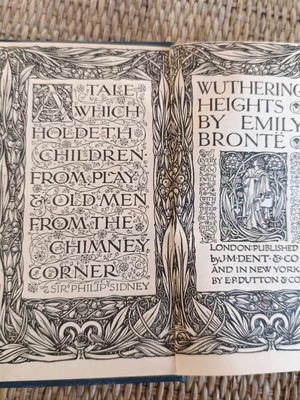 A TALE
WHICH
HOLDETH
CHILDREN
FROM PLAY
& OLD MEN
FROM THE
CHIMNEY
CORNER
SIR PHILIP SIDNEY
WUTHERING
HEIGHTS
BY EMILY
BRONTË
LONDON: PUBLISHED
by J.M. DENT & CO
AND IN NEW YORK
BY E.P. DUTTON & CO